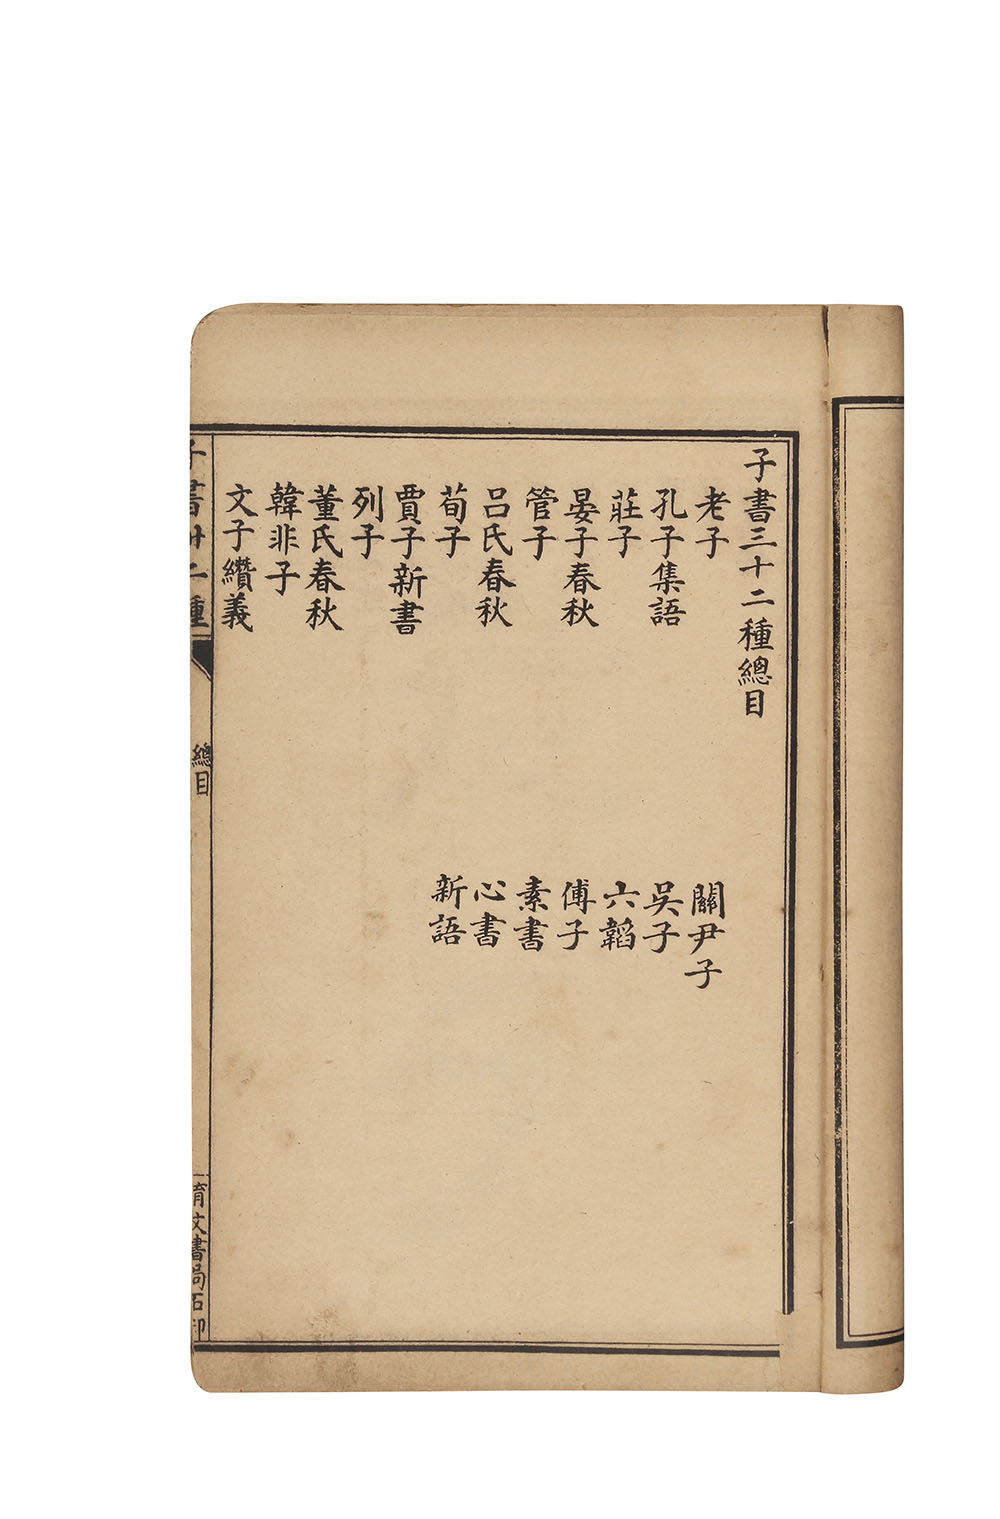 子書三十二種總目
老子
孔子集語
莊子
晏子春秋
管子
呂氏春秋
荀子
賈子新書
列子
董氏春秋
韓非子
文子纘義
關尹子
吳子
六韜
傅子
素書
心書
新語
子書卅二種
總目
育文書局石印